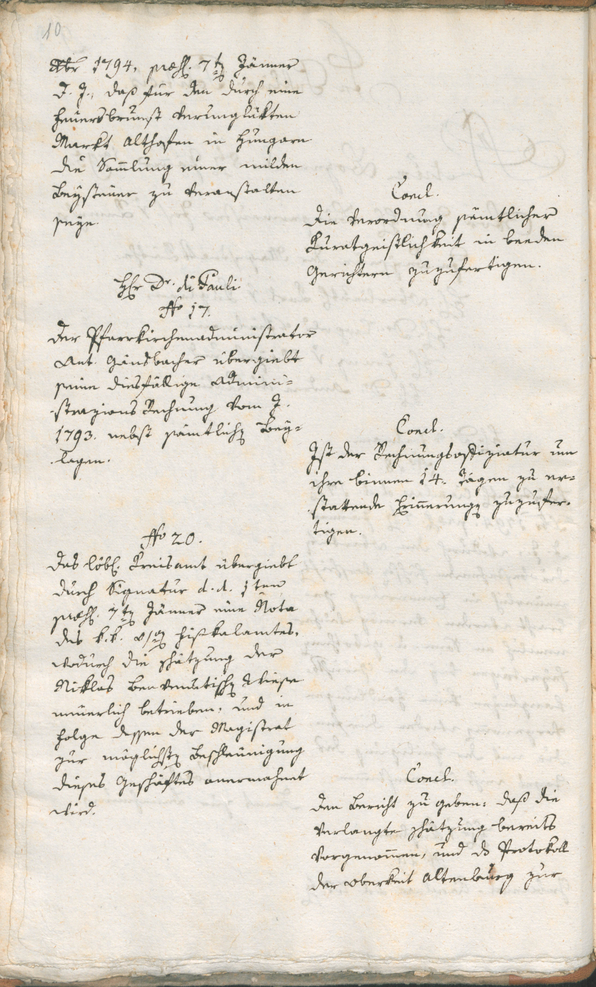 10
Xbr 1794, præs. 7t Jänner
d. J., daß für den durch eine
Feuersbrunst verunglükten
Markt Althofen in Hungarn
die Sam̄lung einer milden
Beysteuer zu veranstalten
seye.
Concl.
Die Verordnung sämtlicher
Kuratgeistlichkeit in beeden
Gerichtern zuzufertigen.
Hr Dr. di Pauli
No 17.
Der Pfarrkirchenadministrator
Ant. Gändbacher übergiebt
seine diesfällige Admini-
strazions Rechnung vom J.
1793. nebst sämtlich Bey-
lagen.
Concl.
Ist der Rechnungsoffiziatur um
ihre binnen 14. Tägen zu er-
stattende Erin̄erung zuzufer-
tigen.
No 20.
Das löbl. Kreisamt übergiebt
durch Signatur d. d. 1ten
præs. 7t Jänner eine Nota
des k. k. Fiskalamtes,
wodurch die Schätzung der
Niklas Benvenutisch Wiese
neuerlich betrieben, und in
Folge dessen der Magistrat
zur möglichst Beschleünigung
dieses Geschäftes anermahnet
wird.
Concl.
Den Bericht zu geben: daß die
verlangte Schätzung bereits
vorgenom̄en, und ds Protokoll
der Oberkeit Altenburg zur